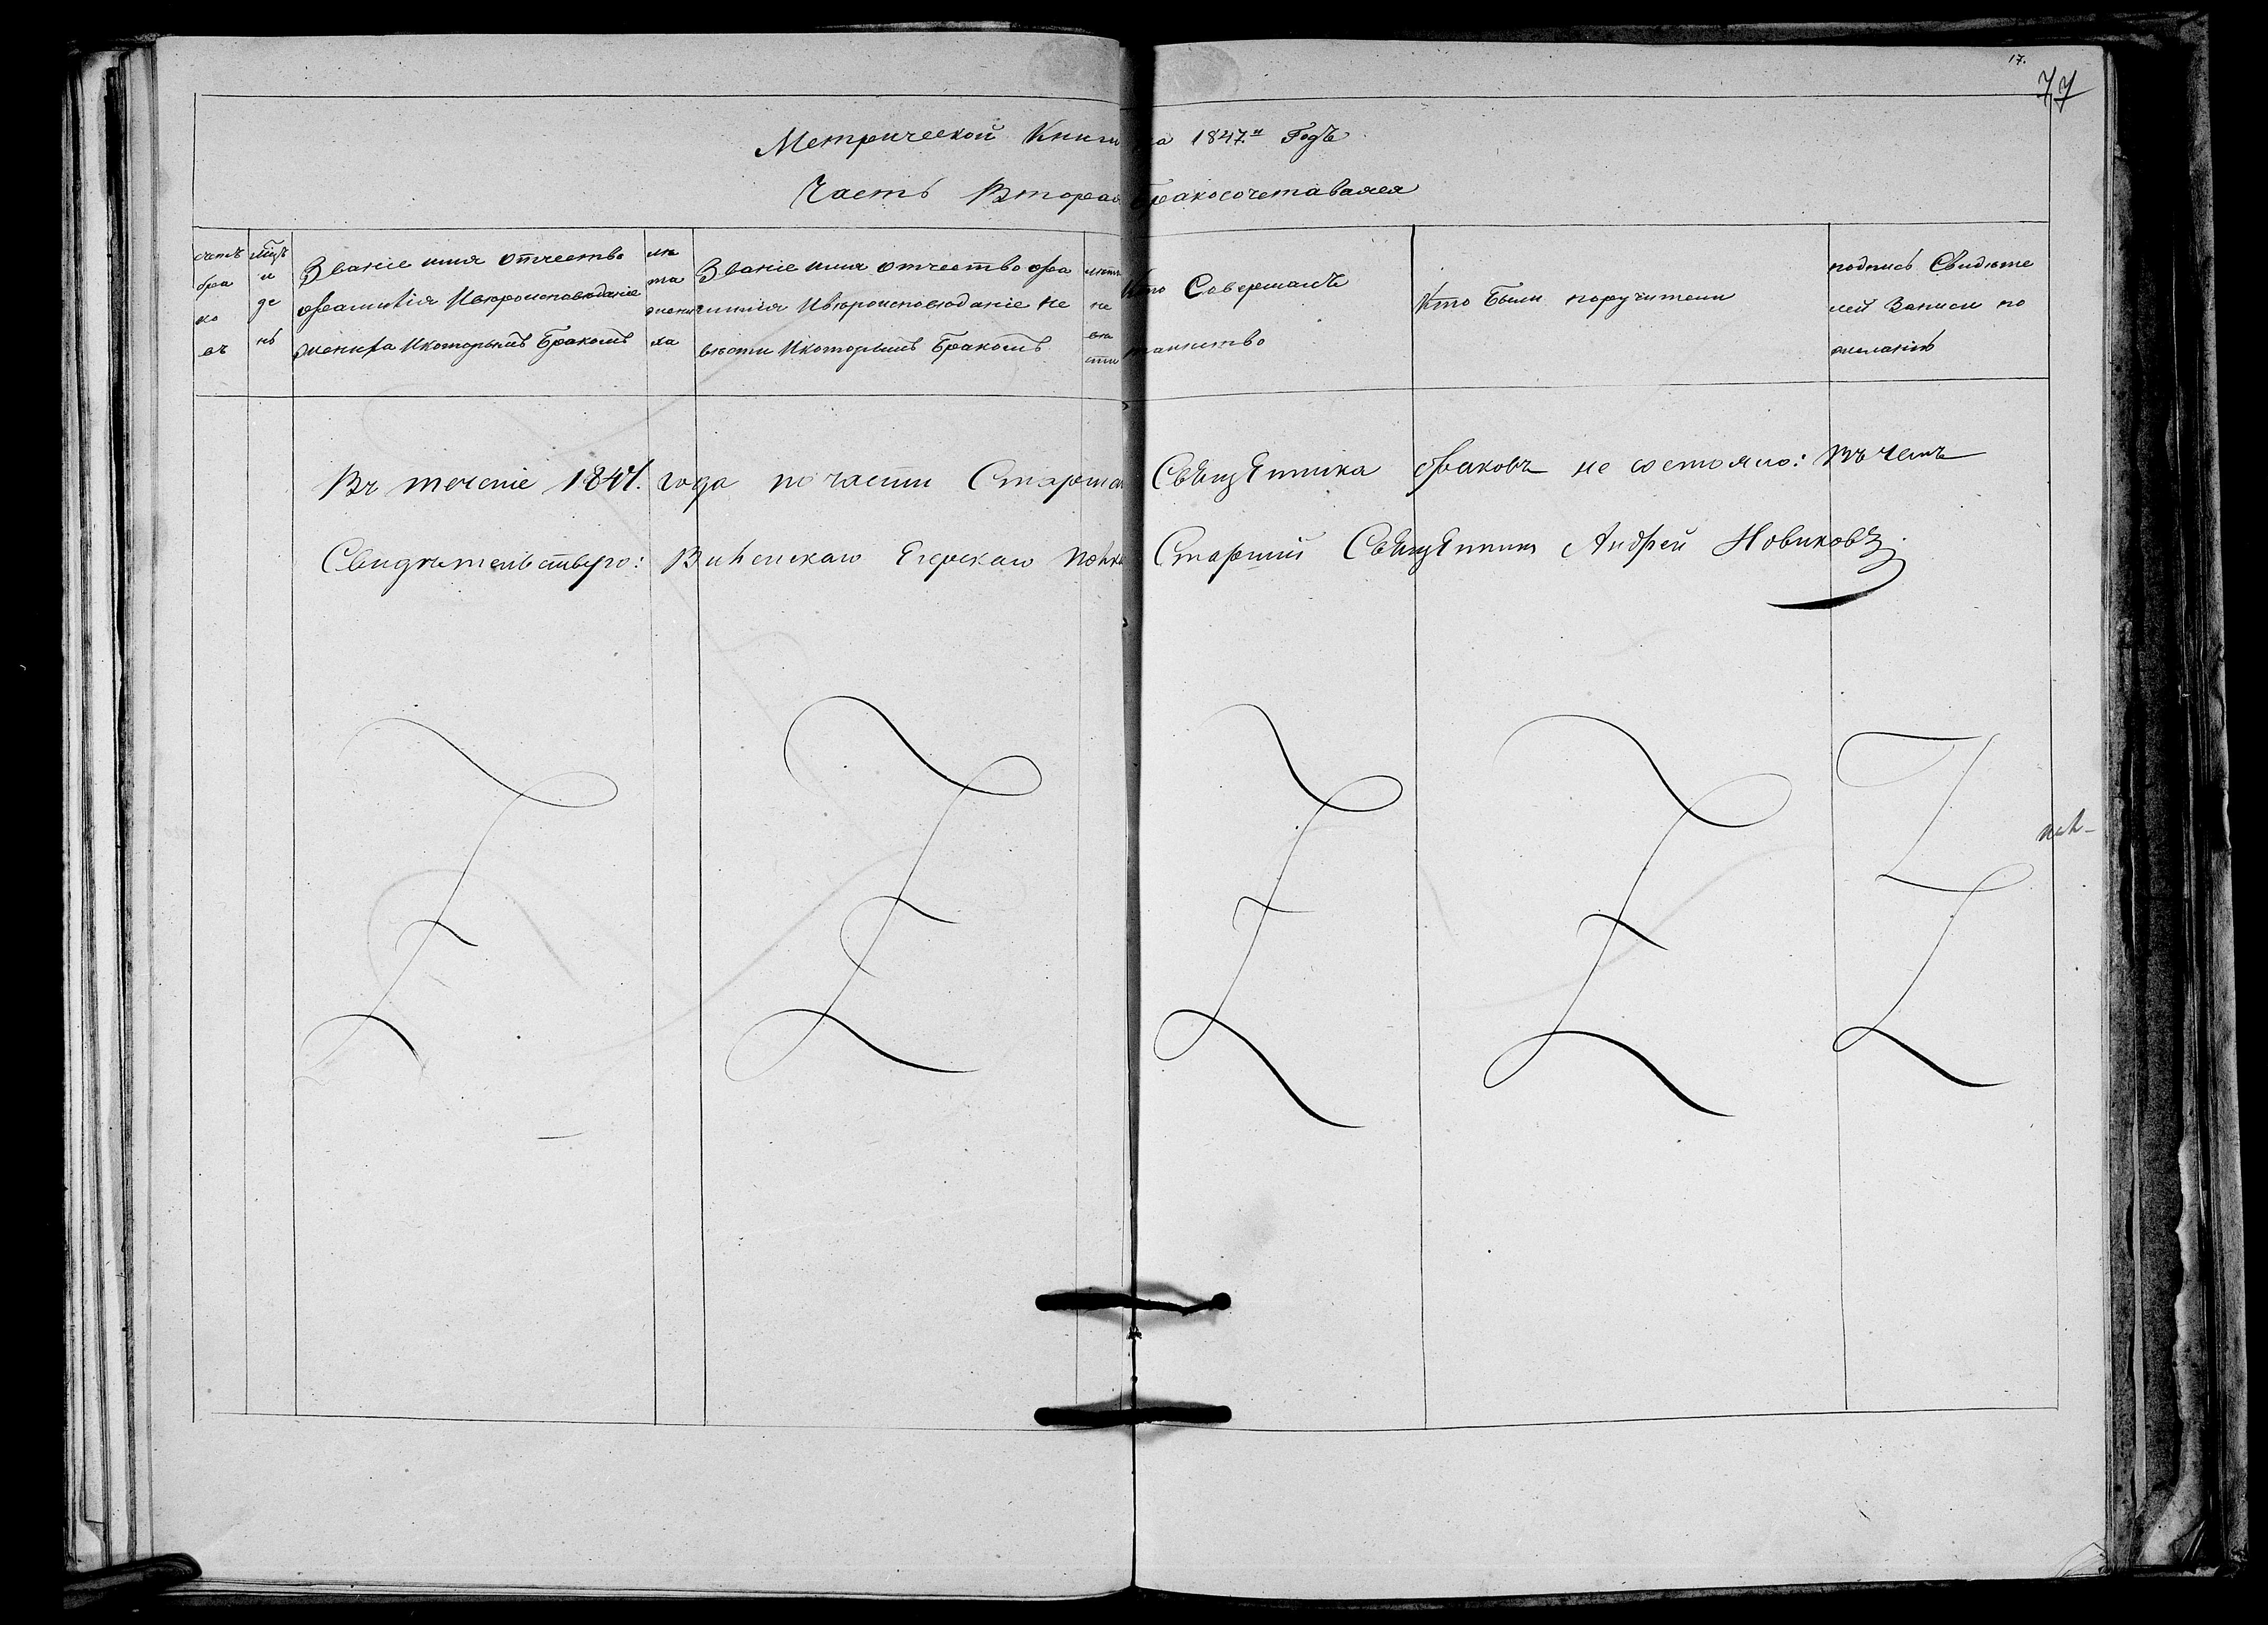 17.
77
Метрической Книги на 1847.й Годъ
Часть Вторая Бракосочетавшихся
счетъ бра ко въ
мцъ и де нь
Званіе имя отчество
фамилія Ивѣроисповѣданіе
жениха Икоторымъ Бракомъ
лѣ та жени ха
Званіе имя отчество фа
милія Ивѣроисповѣданіе не
вѣсты Икоторымъ Бракомъ
лѣта не вѣ сты
Кто Совершалъ
таинство
Кто Были поручители
подпись Свидѣте
лей Записи по
желанію
Въ теченіе 1847. года по части Старшаго Священника браковъ не состояло: Въ чемъ
Свидѣтельствую: Виленскаго Егерскаго Полка Старшій Священникъ Андрей Новиковъ